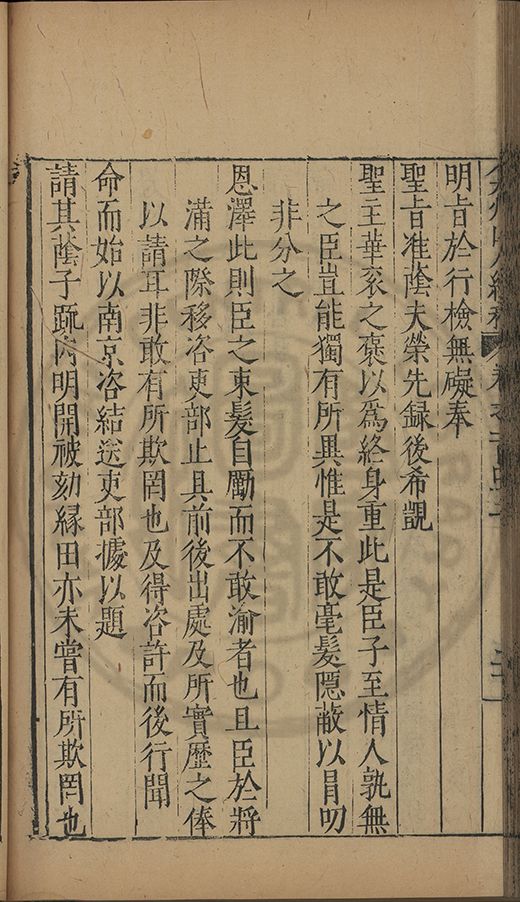 明旨於行檢無礙奉
聖旨准蔭夫榮先録後希覬
聖主華衮之褒以爲終身重此是臣子至情人孰無
之臣豈能獨有所異惟是不敢毫髮隱蔽以冒叨
非分之
恩澤此則臣之束髮自勵而不敢渝者也且臣於將
滿之際移咨吏部止具前後出處及所實歷之俸
以請耳非敢有所欺罔也及得咨許而後行聞
命而始以南京咨結送吏部據以題
請其蔭子䟽内明開被劾縁田亦未嘗有所欺罔也